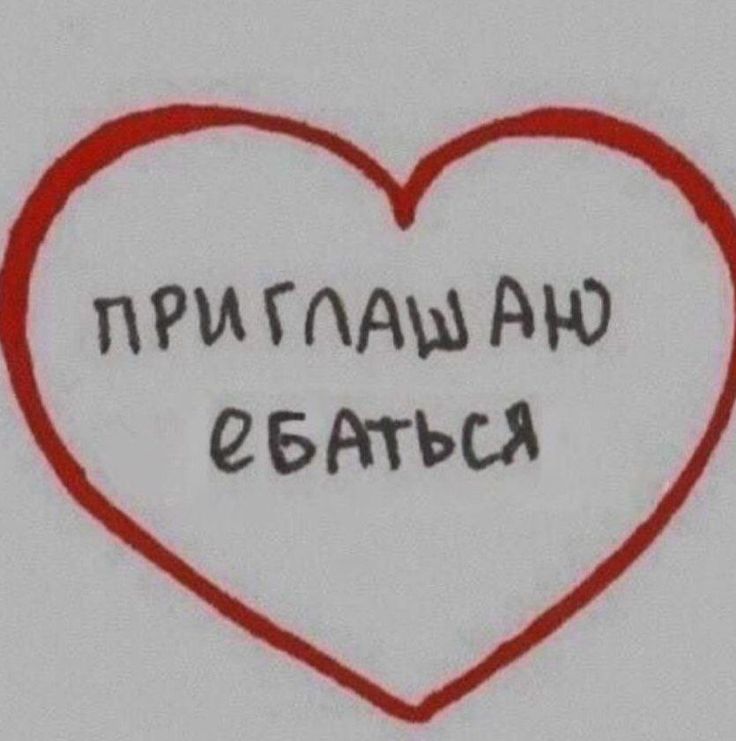 ПРИГЛАШАЮ
еБАТЬСЯ